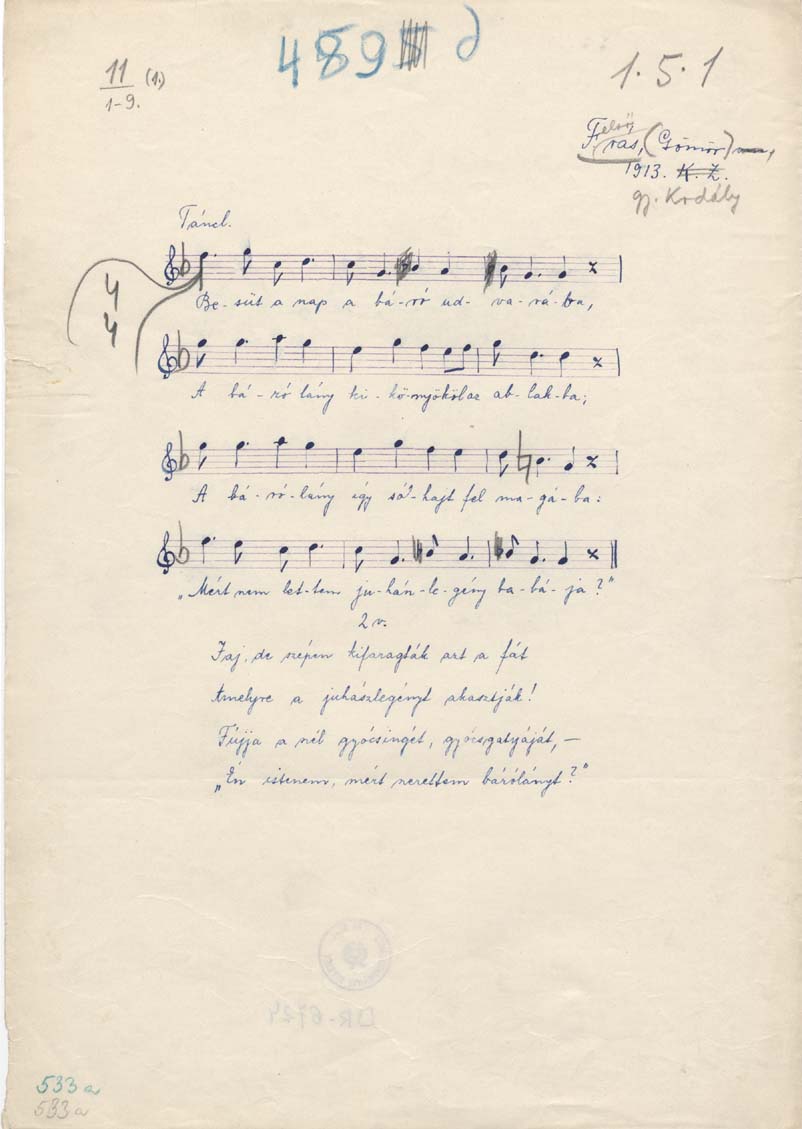 489 d
11 (1.)
1-9.
1.5.1
Felső
Fras, (Gömör)
1913. K. Z.
gy. Kodály
Táncl.
4
4
Be-süt a nap a bá-ró ud-va-rá-ba,
A bá-ró lány ki-kö-nyököl az ab-lak-ba;
A bá-ró-lány így só-hajt fel ma-gá-ba:
„Mért nem let-tem ju-hász-le-gény ba-bá-ja?"
2 v.
Jaj, de szépen kifaragták azt a fát
Amelyre a juhászlegényt akasztják!
Fújja a szél gyócsingét, gyócsgatyáját, —
„Én istenem, mért szerettem bárólányt?"
DR-6724
533 a
533 a